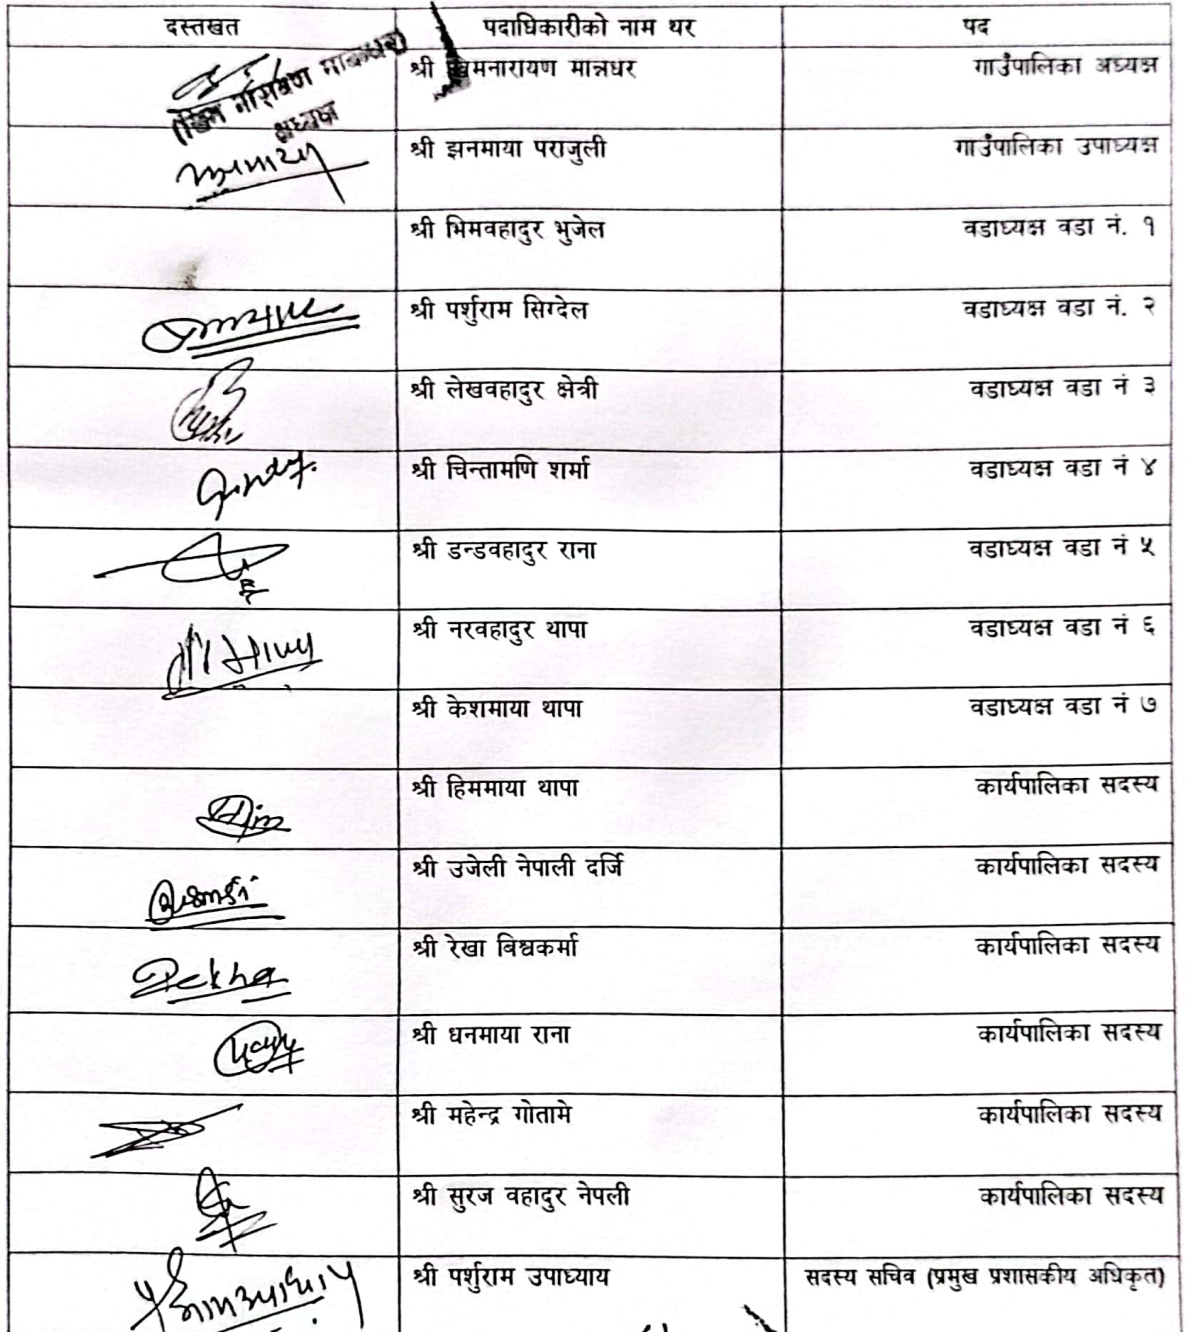 दस्तखत पदाधिकारीको नाम थर पद
श्री खिमनारायण मान्नधर गाउँपालिका अध्यक्ष
अध्यक्ष
श्री झनमाया पराजुली गाउँपालिका उपाध्यक्ष
श्री भिमवहादुर भुजेल वडाध्यक्ष वडा नं. १
श्री पर्शुराम सिग्देल वडाध्यक्ष वडा नं. २
श्री लेखवहादुर क्षेत्री वडाध्यक्ष वडा नं ३
श्री चिन्तामणि शर्मा वडाध्यक्ष वडा नं ४
श्री डन्डवहादुर राना वडाध्यक्ष वडा नं ५
श्री नरवहादुर थापा वडाध्यक्ष वडा नं ६
श्री केशमाया थापा वडाध्यक्ष वडा नं ७
श्री हिममाया थापा कार्यपालिका सदस्य
श्री उजेली नेपाली दर्जि कार्यपालिका सदस्य
श्री रेखा विश्वकर्मा कार्यपालिका सदस्य
Rekha
श्री धनमाया राना कार्यपालिका सदस्य
श्री महेन्द्र गोतामे कार्यपालिका सदस्य
श्री सुरज वहादुर नेपली कार्यपालिका सदस्य
श्री पर्शुराम उपाध्याय सदस्य सचिव (प्रमुख प्रशासकीय अधिकृत)